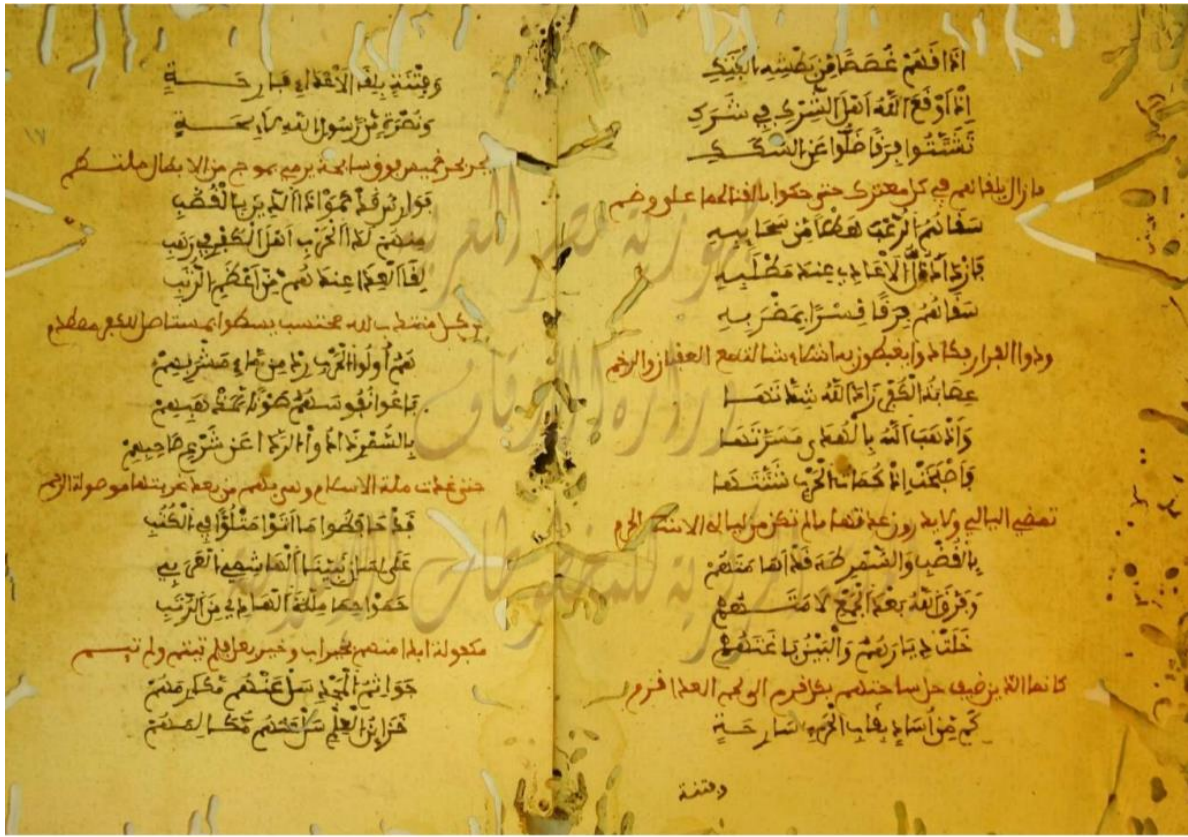 أذاقهم غصصا من بطشه
إذ أوقع الله أهل الشرك في شرك
تشتتوا فرقا ضلوا عن السكك
ما زال يلقاهم في كل معترك حتى حكوا بالقنا لحما على وضم
سقاهم الرعب هطلا من سحايبه
فازداد ذل الأعادي عند مطلبه
سقاهم فرقا قسرا بمضربه
ودوا الفرار فكادوا يغبطون به أشلاء شالت مع العقبان والرخم
عصابة الكفر زاد الله شدتها
وأذهب الله بالهدى مسرتها
فأصبحت إذ كماة الحرب شتتها
تمضي اليالي ولا يدرون عدتها ما لم تكن من ليالي الأشهر الحرم
بالقضب والسمر طه قد
وفرق الله بعد الجمع لامتهم
خلت ديارهم والبين باغتهم
كأنما الدين ضيف حل ساحتهم بكل قرم إلى لحم العدا قرم
كم من أساد بغاب الحرب سارحة
وفتنة
١٧
وفتنة بلقا الأعداء فارحة
ونصرة من رسول الله لايحة
يجر بحر خميس فوق سابحة يرمي بموج من الأبطال ملتطم
فوارس قد حموا ذا الدين بالقضب
منهم لدا الحرب أهل الكفر في رهب
لقا العدا عندهم من أعظم الرتب
من كل منتدب لله محتسب يسطوا بمستاصل للكفر مصطلم
هم أولوا الحرب من مشربهم
باعوا نفوسهم طوعا
بالسمر الردا عن شرع صاحبهم
حتى غدت ملة الاسلام وهي بهم من بعد غربتها موصولة الرحم
قد حافظوا ما أتوا متلوا في الكتب
على لسان نبينا الهاشمي العربي
حموا حما ملة الهادي من الرتب
مكفولة أبدا منهم بخير أب وخير بعل فلم تيتم ولم تيم
المجد سل عنهم مكارمهم
خزاين العلم سل عنهم
جمهورية مصر العربية
وزارة الأوقاف
المكتبة المركزية للمخطوطات الإسلامية